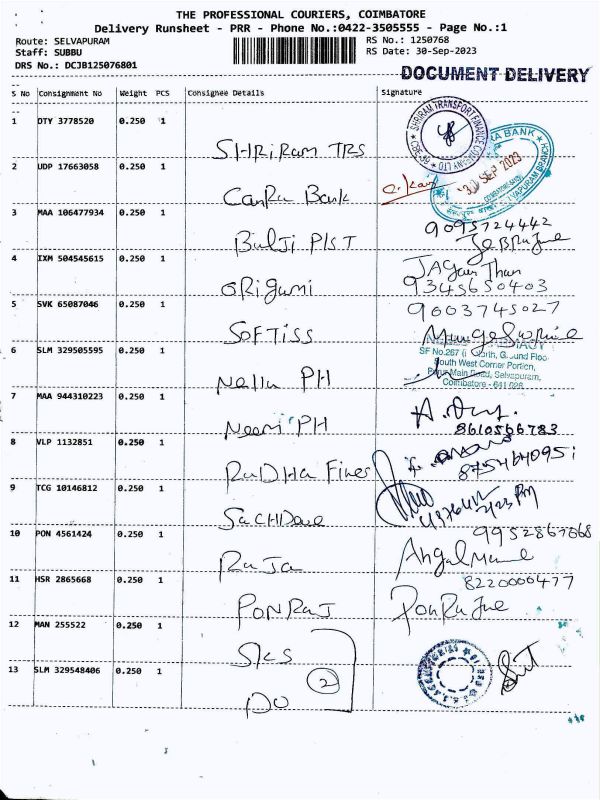 THE PROFESSIONAL COURIERS, COIMBATORE
Delivery Runsheet - PRR - Phone No.:0422-3505555 - Page No.:1
Route: SELVAPURAM
RS No.: 1250768
Staff: SUBBU
RS Date: 30-Sep-2023
DRS No.: DCJB125076801
DOCUMENT DELIVERY
S No Consignment No Weight PCS Consignee Details Signature
1 DTY 3778520 0.250 1 SHRiRam TRS
SHRIRAM TRANSPORT FINANCE COMPANY LTD
2 UDP 17663058 0.250 1 CanRa Bank
RA BANK
30 SEP 2023
3 MAA 106477934 0.250 1 9095724442
4 IXM 504545615 0.250 1 oRigami
9345650403
5 SVK 65087046 0.250 1 SOFTISS
9003745027
6 SLM 329505595 0.250 1 Nella PH
South West Corner Portion,
Main Road, Selvapuram,
Coimbatore - 641 026
7 MAA 944310223 0.250 1 Neeni PH
8610566783
8 VLP 1132851 0.250 1 RaDHa Fines
9 TCG 10146812 0.250 1
10 PON 4561424 0.250 1 RaJa
11 HSR 2865668 0.250 1 PONRaJ
8220000477
12 MAN 255522 0.250 1 SKS
13 SLM 329548406 0.250 1 DO
2